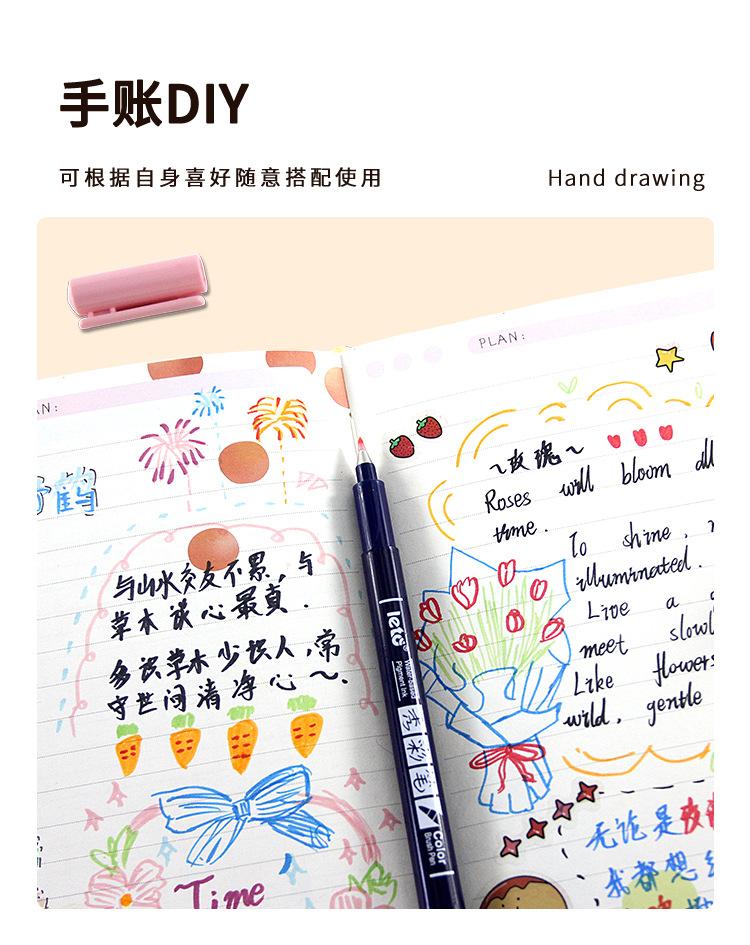 手账DIY
可根据自身喜好随意搭配使用
Hand drawing
PLAN:
AN:
鹤
~玫瑰~
Roses will bloom all
time.
To shine,
illuminated.
Live a
meet slowl
Like flowers
wild, gentle
与山水交友不累,与
草木谈心最真.
多识草木少识人,常
守世间清净心~.
Water-based
Pigment Ink
秀彩笔
Color
Brush Pen
Time
无论是玫瑰
我都想